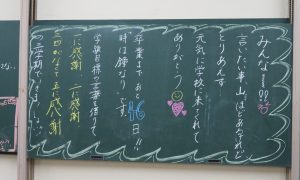 みんなー!!
言いたい事山ほどあるけれど
とりあえず
元気に学校に来てくれて
ありがとう
卒業まであと46日!!
時は鐘なりです。
学級目標の言葉を借りて
一に感謝 二に感謝
三四がなくて五に感謝